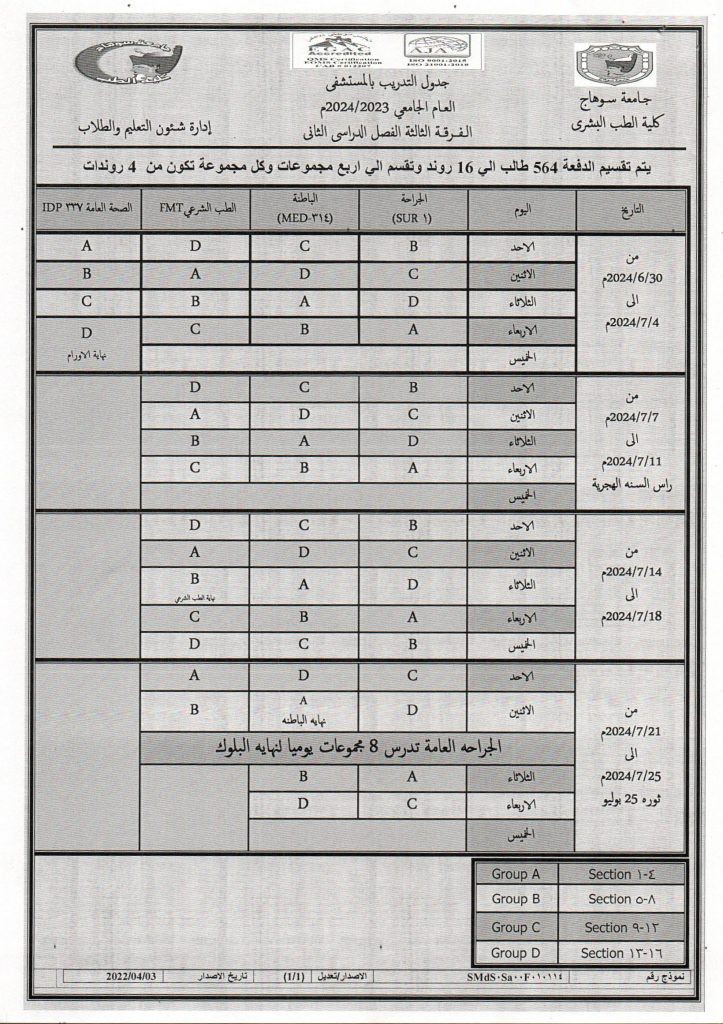 جامعة سوهاج
كلية الطب
EGAC
Accredited
QMS Certification
EOMS Certification
CAB # 012207
AJA
ISO 9001:2015
ISO 21001:2018
جامعة سوهاج
كلية الطب البشرى
جدول التدريب بالمستشفى
العام الجامعي 2024/2023م
الفرقة الثالثة الفصل الدراسى الثانى
إدارة شئون التعليم والطلاب
يتم تقسيم الدفعة 564 طالب الي 16 روند وتقسم الي اربع مجموعات وكل مجموعة تكون من 4 روندات
التاريخ | اليوم | الجراحة (SUR ١) | الباطنة (MED-٣١٤) | الطب الشرعي FMT | الصحة العامة IDP ٣٣٧
من 2024/6/30م الى 2024/7/4م
الاحد | B | C | D | A
الاثنين | C | D | A | B
الثلاثاء | D | A | B | C
الاربعاء | A | B | C | D نهاية الاورام
الخميس
من 2024/7/7م الى 2024/7/11م راس السنه الهجرية
الاحد | B | C | D
الاثنين | C | D | A
الثلاثاء | D | A | B
الاربعاء | A | B | C
الخميس
من 2024/7/14م الى 2024/7/18م
الاحد | B | C | D
الاثنين | C | D | A
الثلاثاء | D | A | B نهاية الطب الشرعي
الاربعاء | A | B | C
الخميس | B | C | D
من 2024/7/21م الى 2024/7/25م ثوره 25 يوليو
الاحد | C | D | A
الاثنين | D | A نهايه الباطنه | B
الجراحه العامة تدرس 8 مجموعات يوميا لنهايه البلوك
الثلاثاء | A | B
الاربعاء | C | D
الخميس
Group A | Section ١-٤
Group B | Section ٥-٨
Group C | Section ٩-١٢
Group D | Section ١٣-١٦
نموذج رقم | SMdS٠Sa٠٠F٠١٠١١٤ | الاصدار/تعديل | (1/1) | تاريخ الاصدار | 2022/04/03